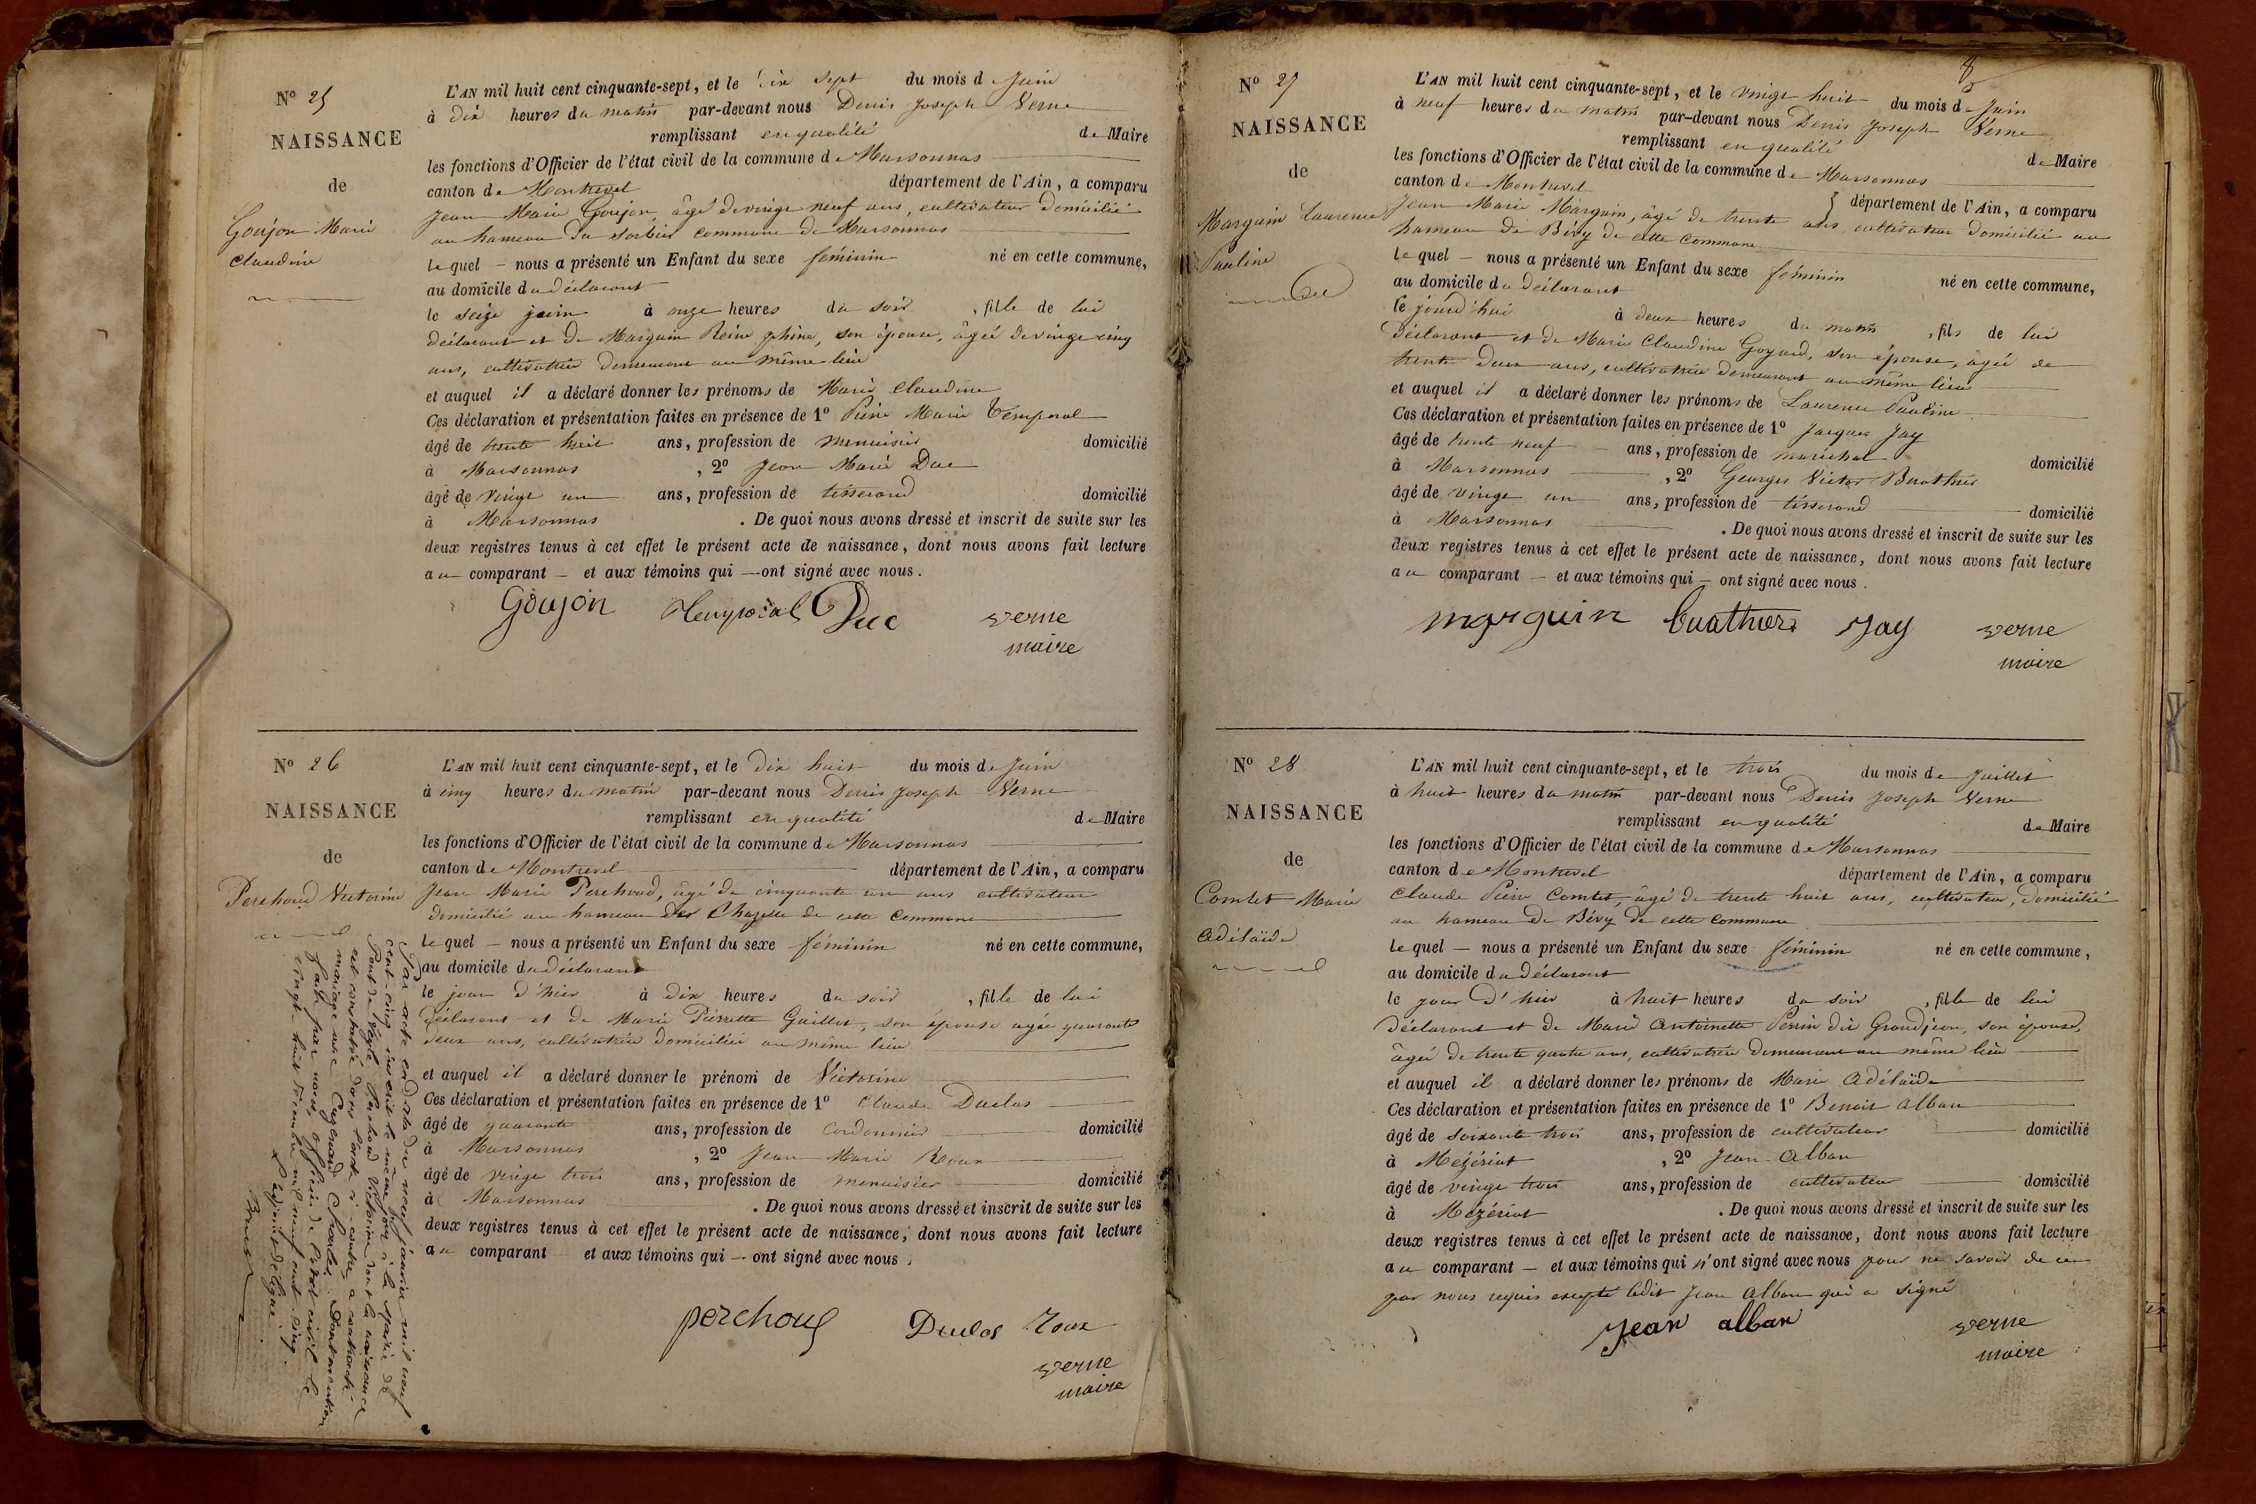 Nº 25
NAISSANCE
de
Goujon Marie
Claudine
L'AN mil huit cent cinquante-sept, et le dix sept du mois de Juin
à dix heures du matin par-devant nous Denis Joseph Verne
remplissant en qualité de Maire
les fonctions d'Officier de l'état civil de la commune de Marsonnas
canton de Montrevel département de l'Ain, a comparu
Jean Marie Goujon, âgé de vingt neuf ans, cultivateur domicilié
au hameau du Sorbier commune de Marsonnas
lequel – nous a présenté un Enfant du sexe féminin né en cette commune,
au domicile du déclarant
le seize juin à onze heures du soir, fille de lui
déclarant et de Marguin Reine phine, son épouse, âgée de vingt cinq
ans, cultivatrice demeurant au même lieu
et auquel il a déclaré donner les prénoms de Marie Claudine
Ces déclaration et présentation faites en présence de 1º Pierre Marie Temporal
âgé de trente huit ans, profession de menuisier domicilié
à Marsonnas, 2º Jean Marie Duc
âgé de vingt un ans, profession de tisserand domicilié
à Marsonnas. De quoi nous avons dressé et inscrit de suite sur les
deux registres tenus à cet effet le présent acte de naissance, dont nous avons fait lecture
au comparant – et aux témoins qui – ont signé avec nous.
Goujon Temporal Duc verne
maire
Nº 26
NAISSANCE
de
Perchoud Victorine
L'AN mil huit cent cinquante-sept, et le dix huit du mois de Juin
à cinq heures du matin par-devant nous Denis Joseph Verne
remplissant en qualité de Maire
les fonctions d'Officier de l'état civil de la commune de Marsonnas
canton de Montrevel département de l'Ain, a comparu
Jean Marie Perchoud, âgé de cinquante un ans cultivateur
domicilié au hameau des Chazelle de cette commune
lequel – nous a présenté un Enfant du sexe féminin né en cette commune,
au domicile du déclarant
le jour d'hier à dix heures du soir, fille de lui
déclarant et de Marie Pierrette Guillet, son épouse agée quarante
deux ans, cultivatrice domiciliée au même lieu
et auquel il a déclaré donner le prénom de Victorine
Ces déclaration et présentation faites en présence de 1º Claude Duclos
âgé de quarante ans, profession de Cordonnier domicilié
à Marsonnas, 2º Jean Marie Roux
âgé de vingt trois ans, profession de menuisier domicilié
à Marsonnas. De quoi nous avons dressé et inscrit de suite sur les
deux registres tenus à cet effet le présent acte de naissance, dont nous avons fait lecture
au comparant et aux témoins qui – ont signé avec nous.
perchoud Duclos Roux
verne
maire
Par acte en date du neuf janvier mil neuf
cent-cinq inscrit le même jour à la mairie de
Pont de Veyle Perchoud Victorine dont la naissance
est constatée dans l'acte ci-contre a contracté
mariage avec Cugenaud Charles. Dont mention
faite par nous officier de l'état civil le
vingt huit mil neuf cent cinq.
8
Nº 27
NAISSANCE
de
Marguin Laurence
Pauline
L'AN mil huit cent cinquante-sept, et le vingt huit du mois de Juin
à neuf heures du matin par-devant nous Denis Joseph Verne
remplissant en qualité de Maire
les fonctions d'Officier de l'état civil de la commune de Marsonnas
canton de Montrevel département de l'Ain, a comparu
Jean Marie Marguin, âgé de trente ans cultivateur domicilié au
hameau de Bévy de cette commune
lequel – nous a présenté un Enfant du sexe féminin né en cette commune,
au domicile du déclarant
le jourd'hui à deux heures du matin, fils de lui
déclarant et de Marie Claudine Goyard, son épouse, âgée de
trente deux ans, cultivatrice demeurant au même lieu
et auquel il a déclaré donner les prénoms de Laurence Pauline
Ces déclaration et présentation faites en présence de 1º Jacques Jay
âgé de trente neuf ans, profession de maréchal domicilié
à Marsonnas, 2º Georges Victor Buathier
âgé de vingt un ans, profession de tisserand domicilié
à Marsonnas. De quoi nous avons dressé et inscrit de suite sur les
deux registres tenus à cet effet le présent acte de naissance, dont nous avons fait lecture
au comparant – et aux témoins qui – ont signé avec nous.
marguin buathier Jay verne
maire
Nº 28
NAISSANCE
de
Comtet Marie
Adélaïde
L'AN mil huit cent cinquante-sept, et le trois du mois de Juillet
à huit heures du matin par-devant nous Denis Joseph Verne
remplissant en qualité de Maire
les fonctions d'Officier de l'état civil de la commune de Marsonnas
canton de Montrevel département de l'Ain, a comparu
Claude Pierre Comtet, âgé de trente huit ans, cultivateur, domicilié
au hameau de Bévy de cette commune
lequel – nous a présenté un Enfant du sexe féminin né en cette commune,
au domicile du déclarant
le jour d'hier à huit heures du soir, fille de lui
déclarant et de Marie Antoinette Perrin dit Grandjean, son épouse,
âgée de trente quatre ans, cultivatrice demeurant au même lieu
et auquel il a déclaré donner les prénoms de Marie Adélaïde
Ces déclaration et présentation faites en présence de 1º Benoit Alban
âgé de soixante trois ans, profession de cultivateur domicilié
à Mezériat, 2º Jean Alban
âgé de vingt trois ans, profession de cultivateur domicilié
à Mézériat. De quoi nous avons dressé et inscrit de suite sur les
deux registres tenus à cet effet le présent acte de naissance, dont nous avons fait lecture
au comparant – et aux témoins qui n'ont signé avec nous pour ne savoir de ce
par nous requis excepté ledit Jean Alban qui a signé
Jean alban verne
maire